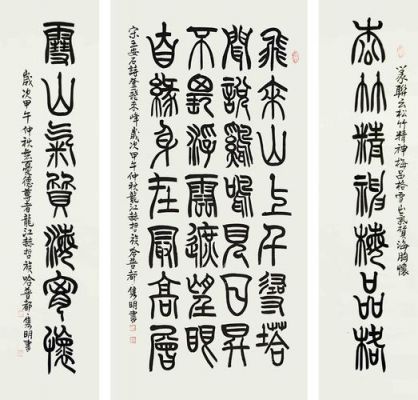 篆聯云松竹精神梅品格雪山氣質海胸懷
松竹精神梅品格
飛來山上千尋塔
聞說雞鳴見日昇
不畏浮雲遮望眼
自緣身在最高層
宋王安石詩登飛來峰歲次甲午仲秋龍江赫哲族哈普都隽明書
雪山氣質海胸懷
歲次甲午仲秋無憂德馨齋龍江赫哲族哈普都隽明書